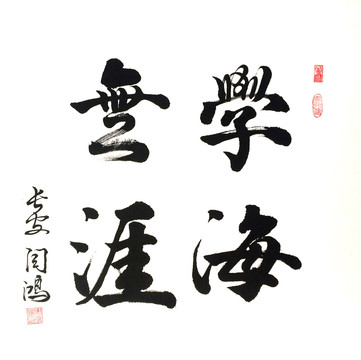 學海
無涯
長安 闫鴻